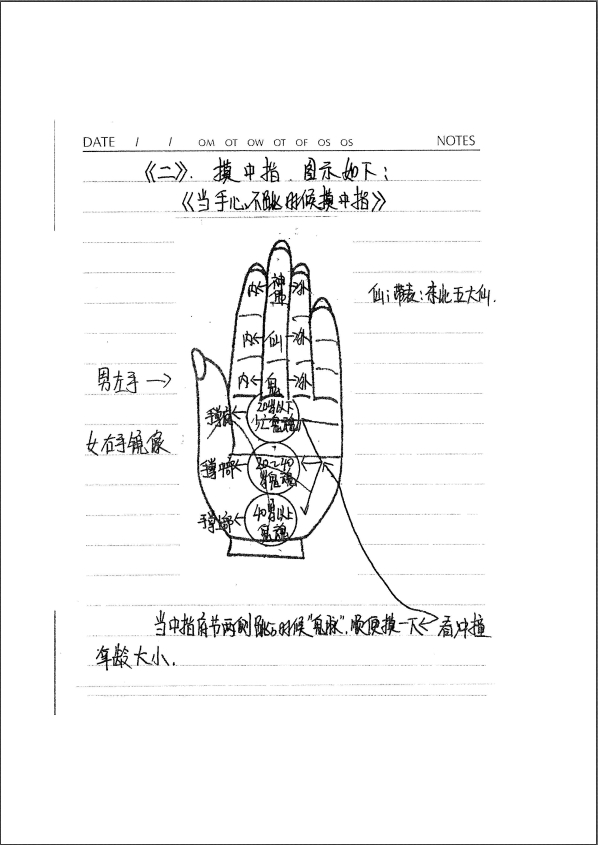 DATE / / OM OT OW OT OF OS OS NOTES
《二》. 摸中指. 图示如下:
《当手心不跳时候摸中指》
神
内← →外
仙:带表:东北五大仙.
内←仙→外
男左手→
内←鬼→外
20岁以下
少亡鬼魂
女右手镜像
手掌中部←
20~40
岁鬼魂
手掌←
40岁以上
鬼魂
当中指 节两侧跳时候“鬼脉”.顺便摸一下←看冲撞
年龄大小.